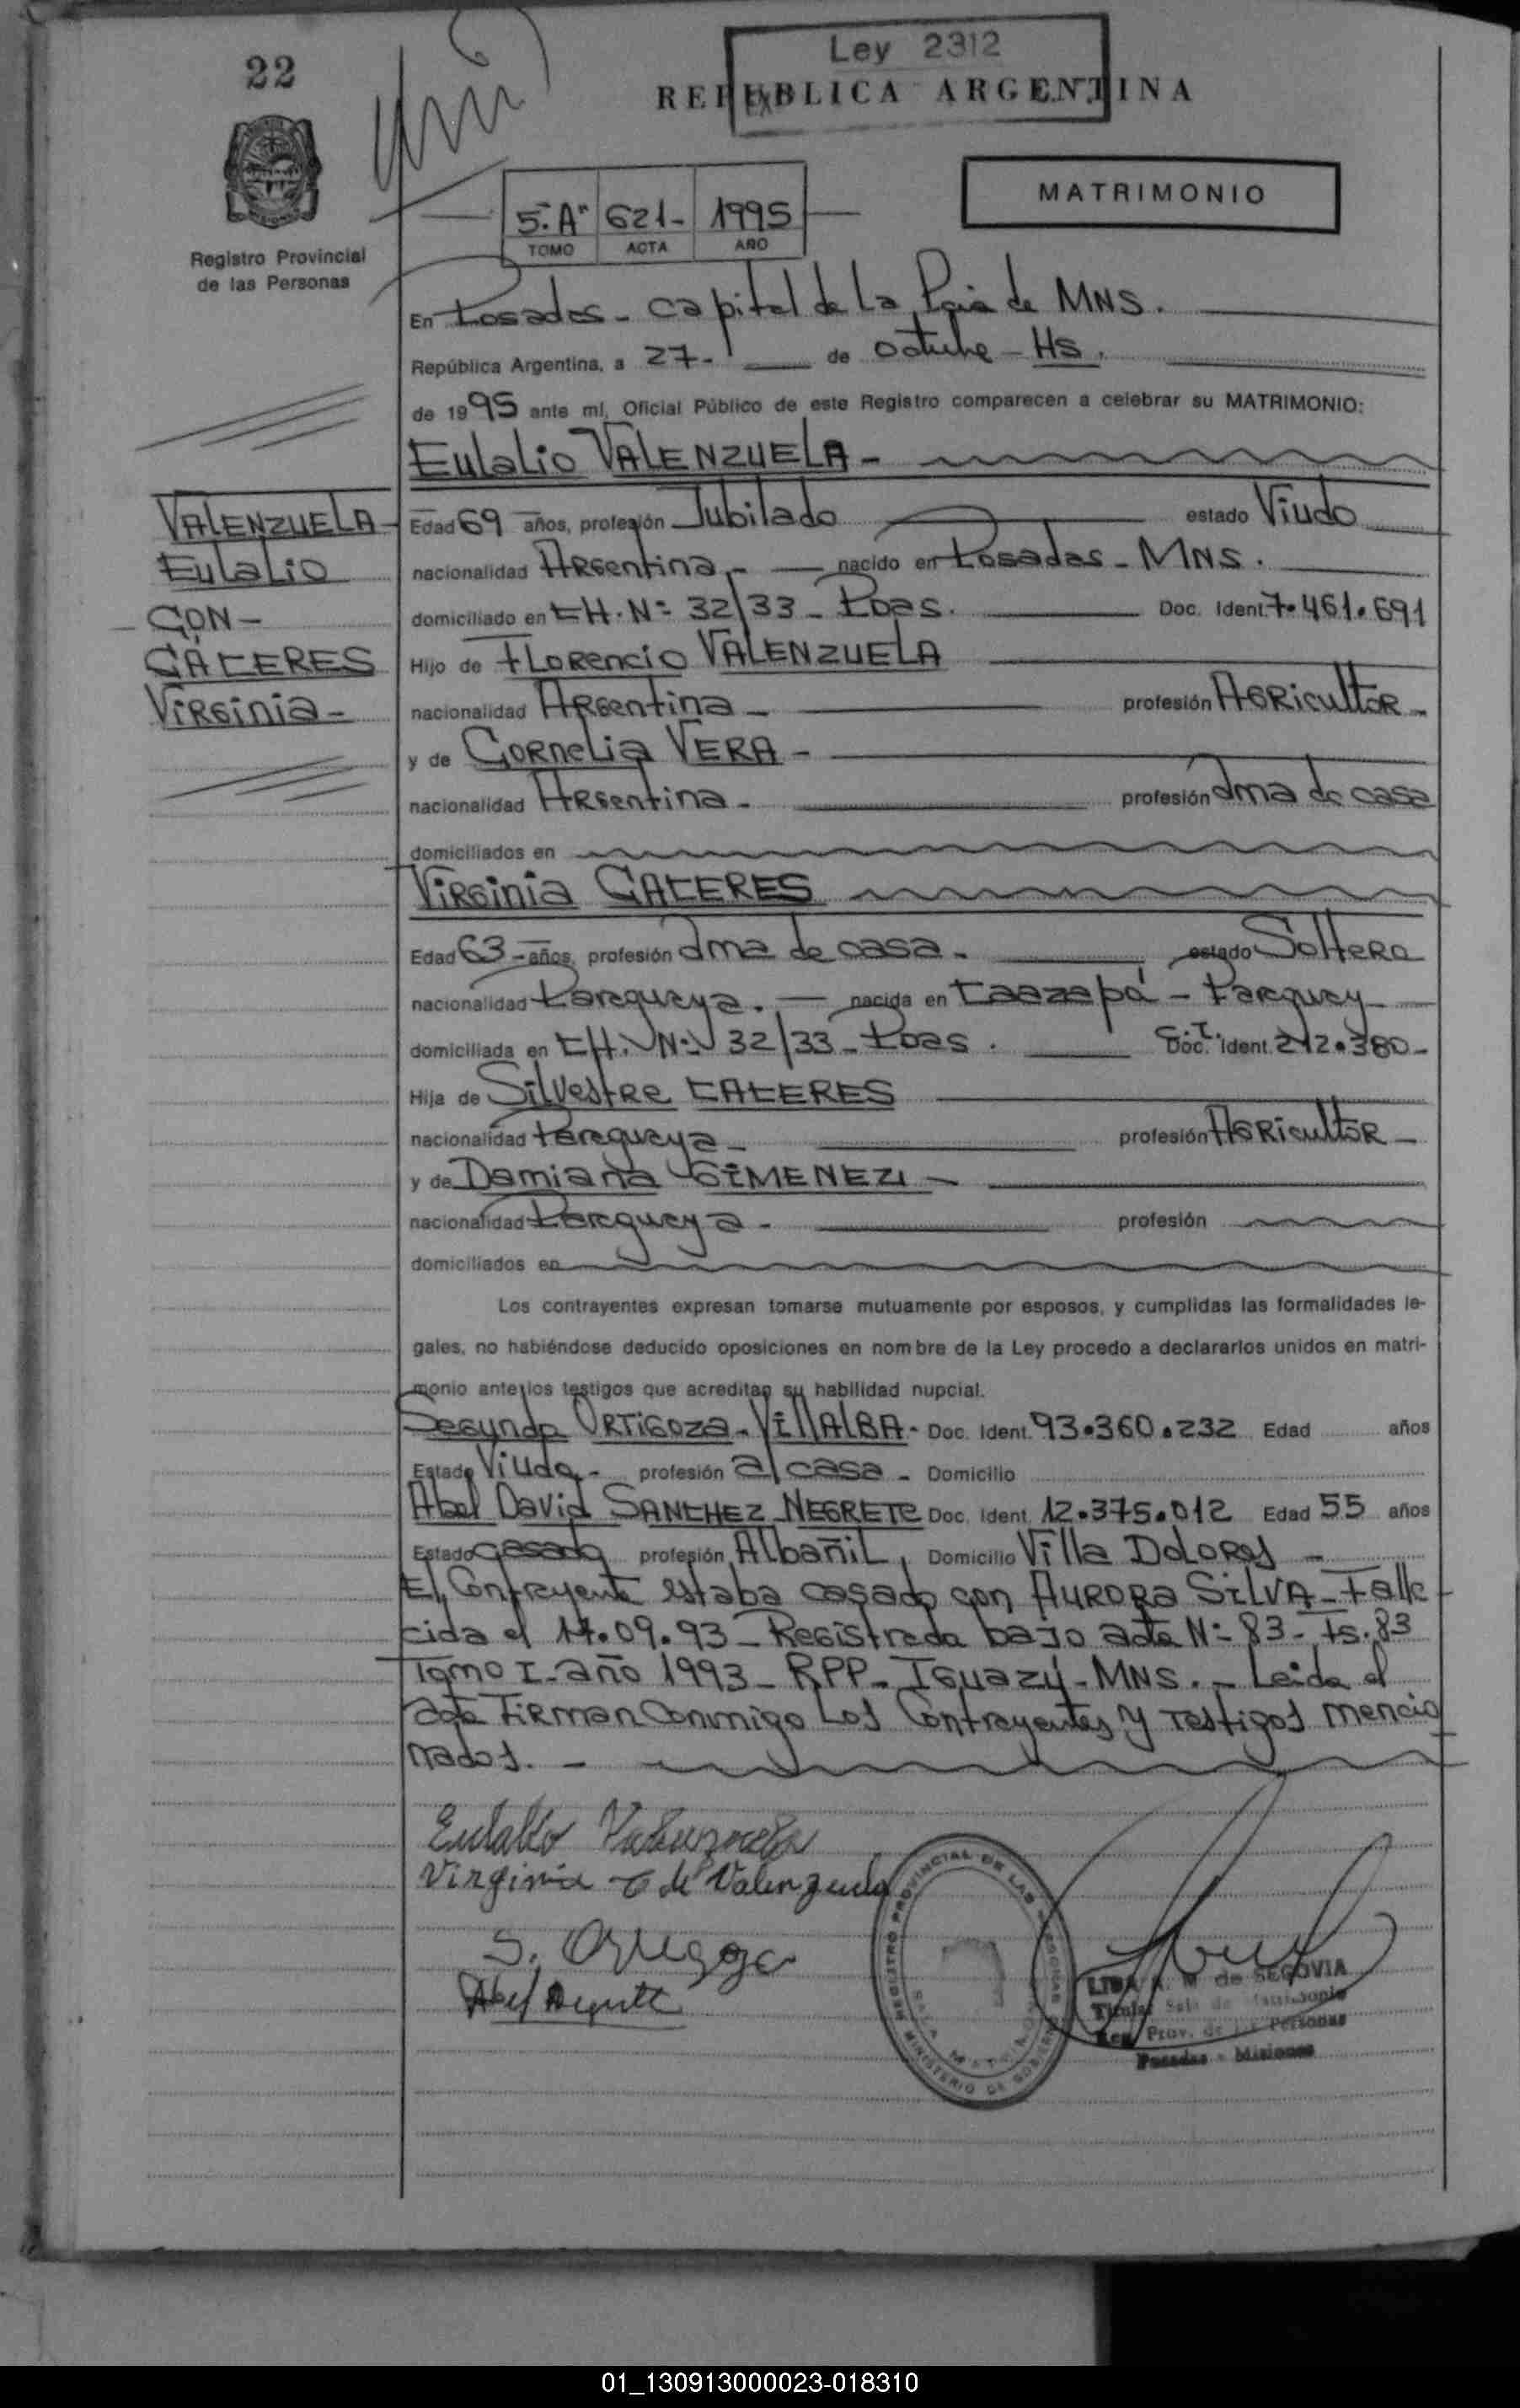 22
Ley 2312
REPUBLICA ARGENTINA
MATRIMONIO
5.A" 621- 1995
TOMO ACTA AÑO
Registro Provincial
de las Personas
En Posadas - Capital de La Pcia de MNS.
República Argentina, a 27- de octubre - HS.
de 1995 ante mí, Oficial Público de este Registro comparecen a celebrar su MATRIMONIO:
Eulalio VALENZUELA -
VALENZUELA
Eulalio
CON -
CACERES
Virginia -
Edad 69 años, profesión Jubilado estado Viudo
nacionalidad Argentina - nacido en Posadas - MNS.
domiciliado en CH. Nº 32/33 - Pdas. Doc. Ident. 7.461.691
Hijo de Florencio VALENZUELA
nacionalidad Argentina - profesión Agricultor -
y de Cornelia VERA -
nacionalidad Argentina - profesión ama de casa
domiciliados en
Virginia CACERES
Edad 63 - años, profesión ama de casa - estado Soltera
nacionalidad Paraguaya. - nacida en Caazapá - Paraguay
domiciliada en CH. Nº 32/33 - Pdas. C.I. Doc. Ident. 212.380 -
Hija de Silvestre CACERES
nacionalidad Paraguaya - profesión Agricultor -
y de Damiana GIMENEZ -
nacionalidad Paraguaya - profesión
domiciliados en
Los contrayentes expresan tomarse mutuamente por esposos, y cumplidas las formalidades le-
gales, no habiéndose deducido oposiciones en nombre de la Ley procedo a declararlos unidos en matri-
monio ante los testigos que acreditan su habilidad nupcial.
Segunda ORTIGOZA - VILLALBA - Doc. Ident. 93.360.232 Edad años
Estado Viuda - profesión a/casa - Domicilio
Abel David SANCHEZ NEGRETE Doc. Ident. 12.375.012 Edad 55 años
Estado casado profesión Albañil, Domicilio Villa Dolores -
El Contrayente estaba casado con AURORA SILVA - Falle
cida el 17.09.93 - Registrada bajo acta Nº 83 - Fs. 83
Tomo I - año 1993 - RPP - Iguazú - MNS. - Leida el
acta Firman Conmigo Los Contrayentes y Testigos mencio
nados. -
Eulalio Valenzuela
Virginia C de Valenzuela
S. Ortigoza
Abel Negrete
REGISTRO PROVINCIAL DE LAS PERSONAS
MINISTERIO DE GOBIERNO
SALA MATRIMONIO
M. de SEGOVIA
Titular Sala de Matrimonio
Reg. Prov. de las Personas
Posadas - Misiones
01_130913000023-018310